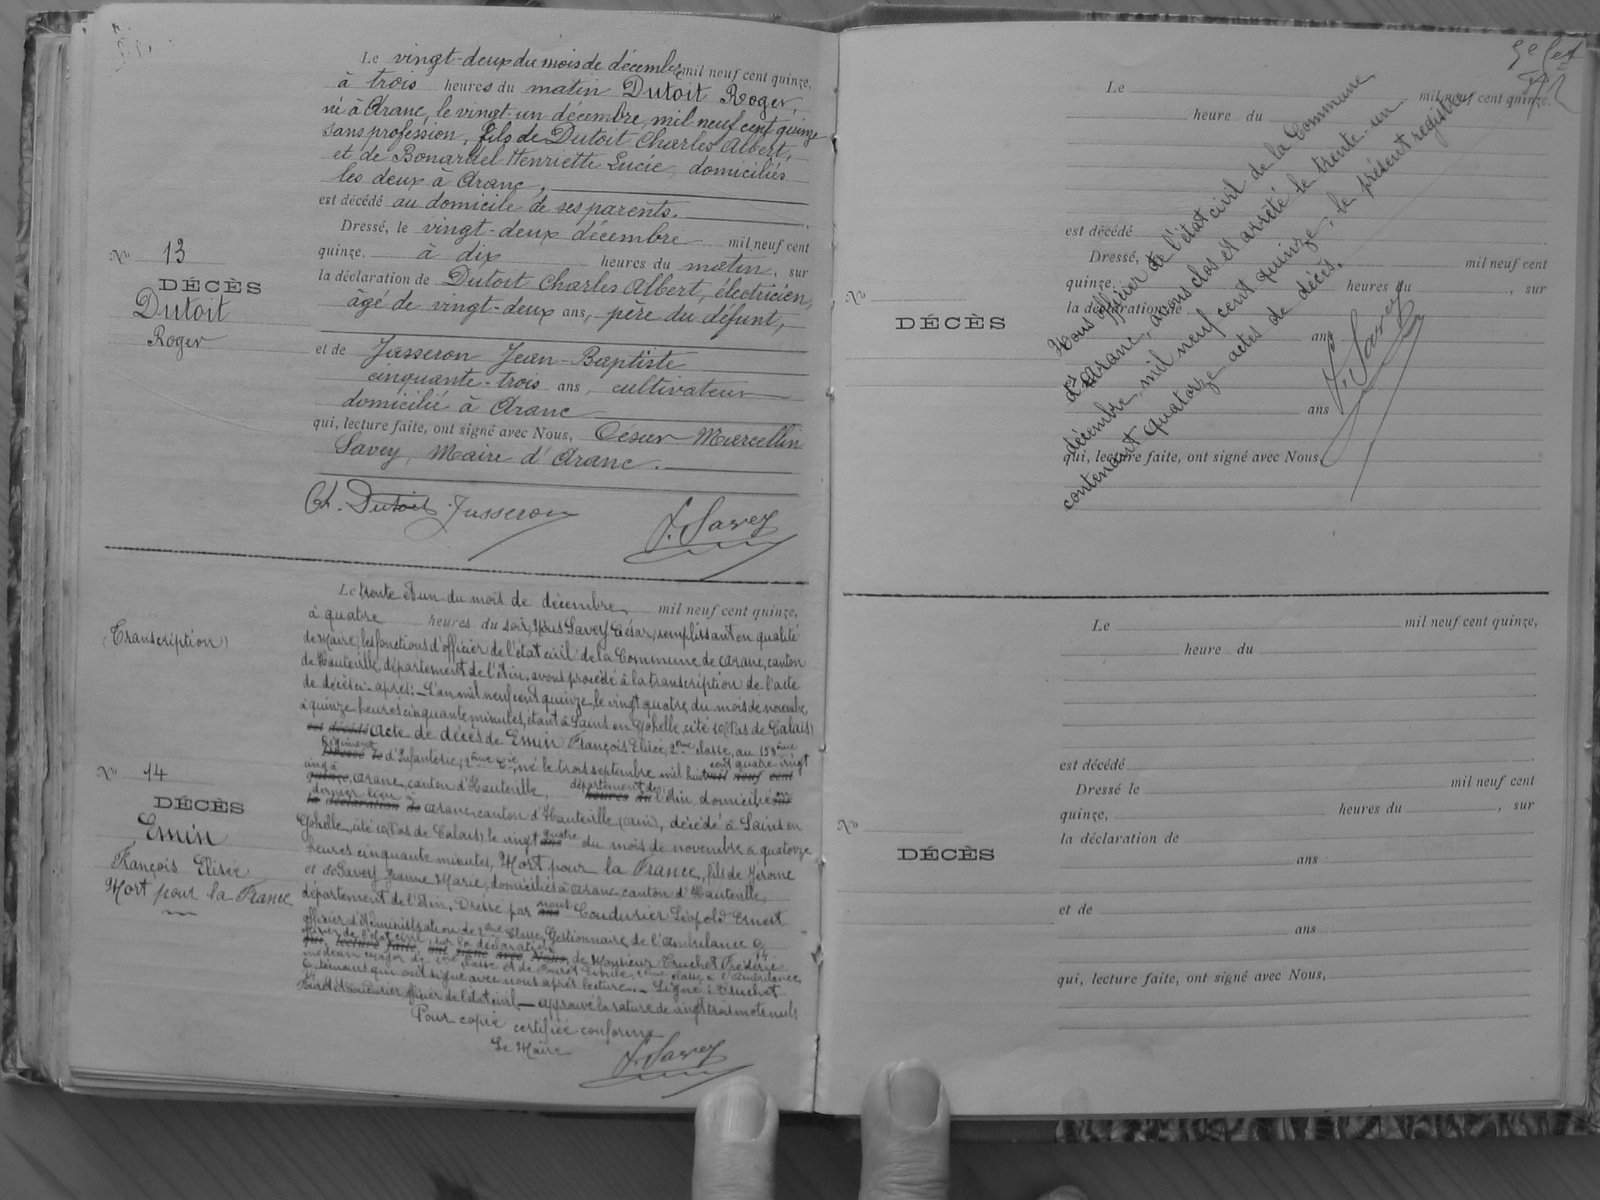 Le vingt-deux du mois de décembre mil neuf cent quinze,
à trois heures du matin Dutoit Roger,
né à Aranc, le vingt-un décembre, mil neuf cent quinze
sans profession, fils de Dutoit Charles Albert,
et de Bonardel Henriette Lucie, domiciliés
les deux à Aranc,
est décédé au domicile de ses parents.
Dressé, le vingt-deux décembre mil neuf cent
quinze, à dix heures du matin, sur
la déclaration de Dutoit Charles Albert, électricien,
âgé de vingt-deux ans, père du défunt,
et de Jusseron Jean-Baptiste
cinquante-trois ans, cultivateur
domicilié à Aranc
qui, lecture faite, ont signé avec Nous, César Marcellin
Savey, Maire d'Aranc.
Ch. Dutoit Jusseron J. Savey
No 13
DÉCÈS
Dutoit
Roger
Le trente et un du mois de décembre, mil neuf cent quinze,
à quatre heures du soir, Nous Savey César, remplissant en qualité
de Maire, les fonctions d'officier de l'état civil de la Commune de Aranc, canton
de Hauteville, département de l'Ain, avons procédé à la transcription de l'acte
de décès ci-après: L'an mil neuf cent quinze, le vingt quatre du mois de novembre,
à quinze heures cinquante minutes, étant à Sains en Gohelle, cité 10 (Pas de Calais)
est décédé acte de décès de Emin François Elisée, 2me classe, au 158ème
régiment
Dressé le d'Infanterie, 2ème Cie, né le trois septembre mil huit cent quatre-vingt
cinq à
quinze, Aranc, canton d'Hauteville, département de heures du l'Ain, domicilié en
dernier lieu
la déclaration de Aranc, canton d'Hauteville (Ain), décédé à Sains en
Gohelle, cité 10 (Pas de Calais), le vingt quatre du mois de novembre à quatorze
heures cinquante minutes, Mort pour la France, fils de Jérôme
et de Savey Jeanne Marie, domiciliés à Aranc canton d'Hauteville,
département de l'Ain. Dressé par nous Coudurier Léopold Ernest
officier d'Administration de 2ème classe, Gestionnaire de l'ambulance
officier de l'état civil, sur la déclaration
qui, lecture faite, ont signé avec Nous, de Monsieur Truchet Frédéric
médecin major de classe et de classe à l'Ambulance
témoins qui ont signé avec nous après lecture. Signé: Truchet
Coudurier officier de l'état civil — approuvé la rature de vingt trois mots nuls
Pour copie certifiée conforme
Le Maire J. Savey
(Transcription)
No 14
DÉCÈS
Emin
François Elisée
Mort pour la France
Le mil neuf cent quinze,
heure du
est décédé
Dressé, mil neuf cent
quinze, heures du , sur
la déclaration de
ans
ans
qui, lecture faite, ont signé avec Nous,
No
DÉCÈS
Nous officier de l'état civil de la Commune
d'Aranc, avons clos et arrêté le trente-un
décembre, mil neuf cent quinze, le présent registre
contenant quatorze actes de décès.
J. Savey
Le mil neuf cent quinze,
heure du
est décédé
Dressé le mil neuf cent
quinze, heures du , sur
la déclaration de
ans
et de
ans
qui, lecture faite, ont signé avec Nous,
No
DÉCÈS